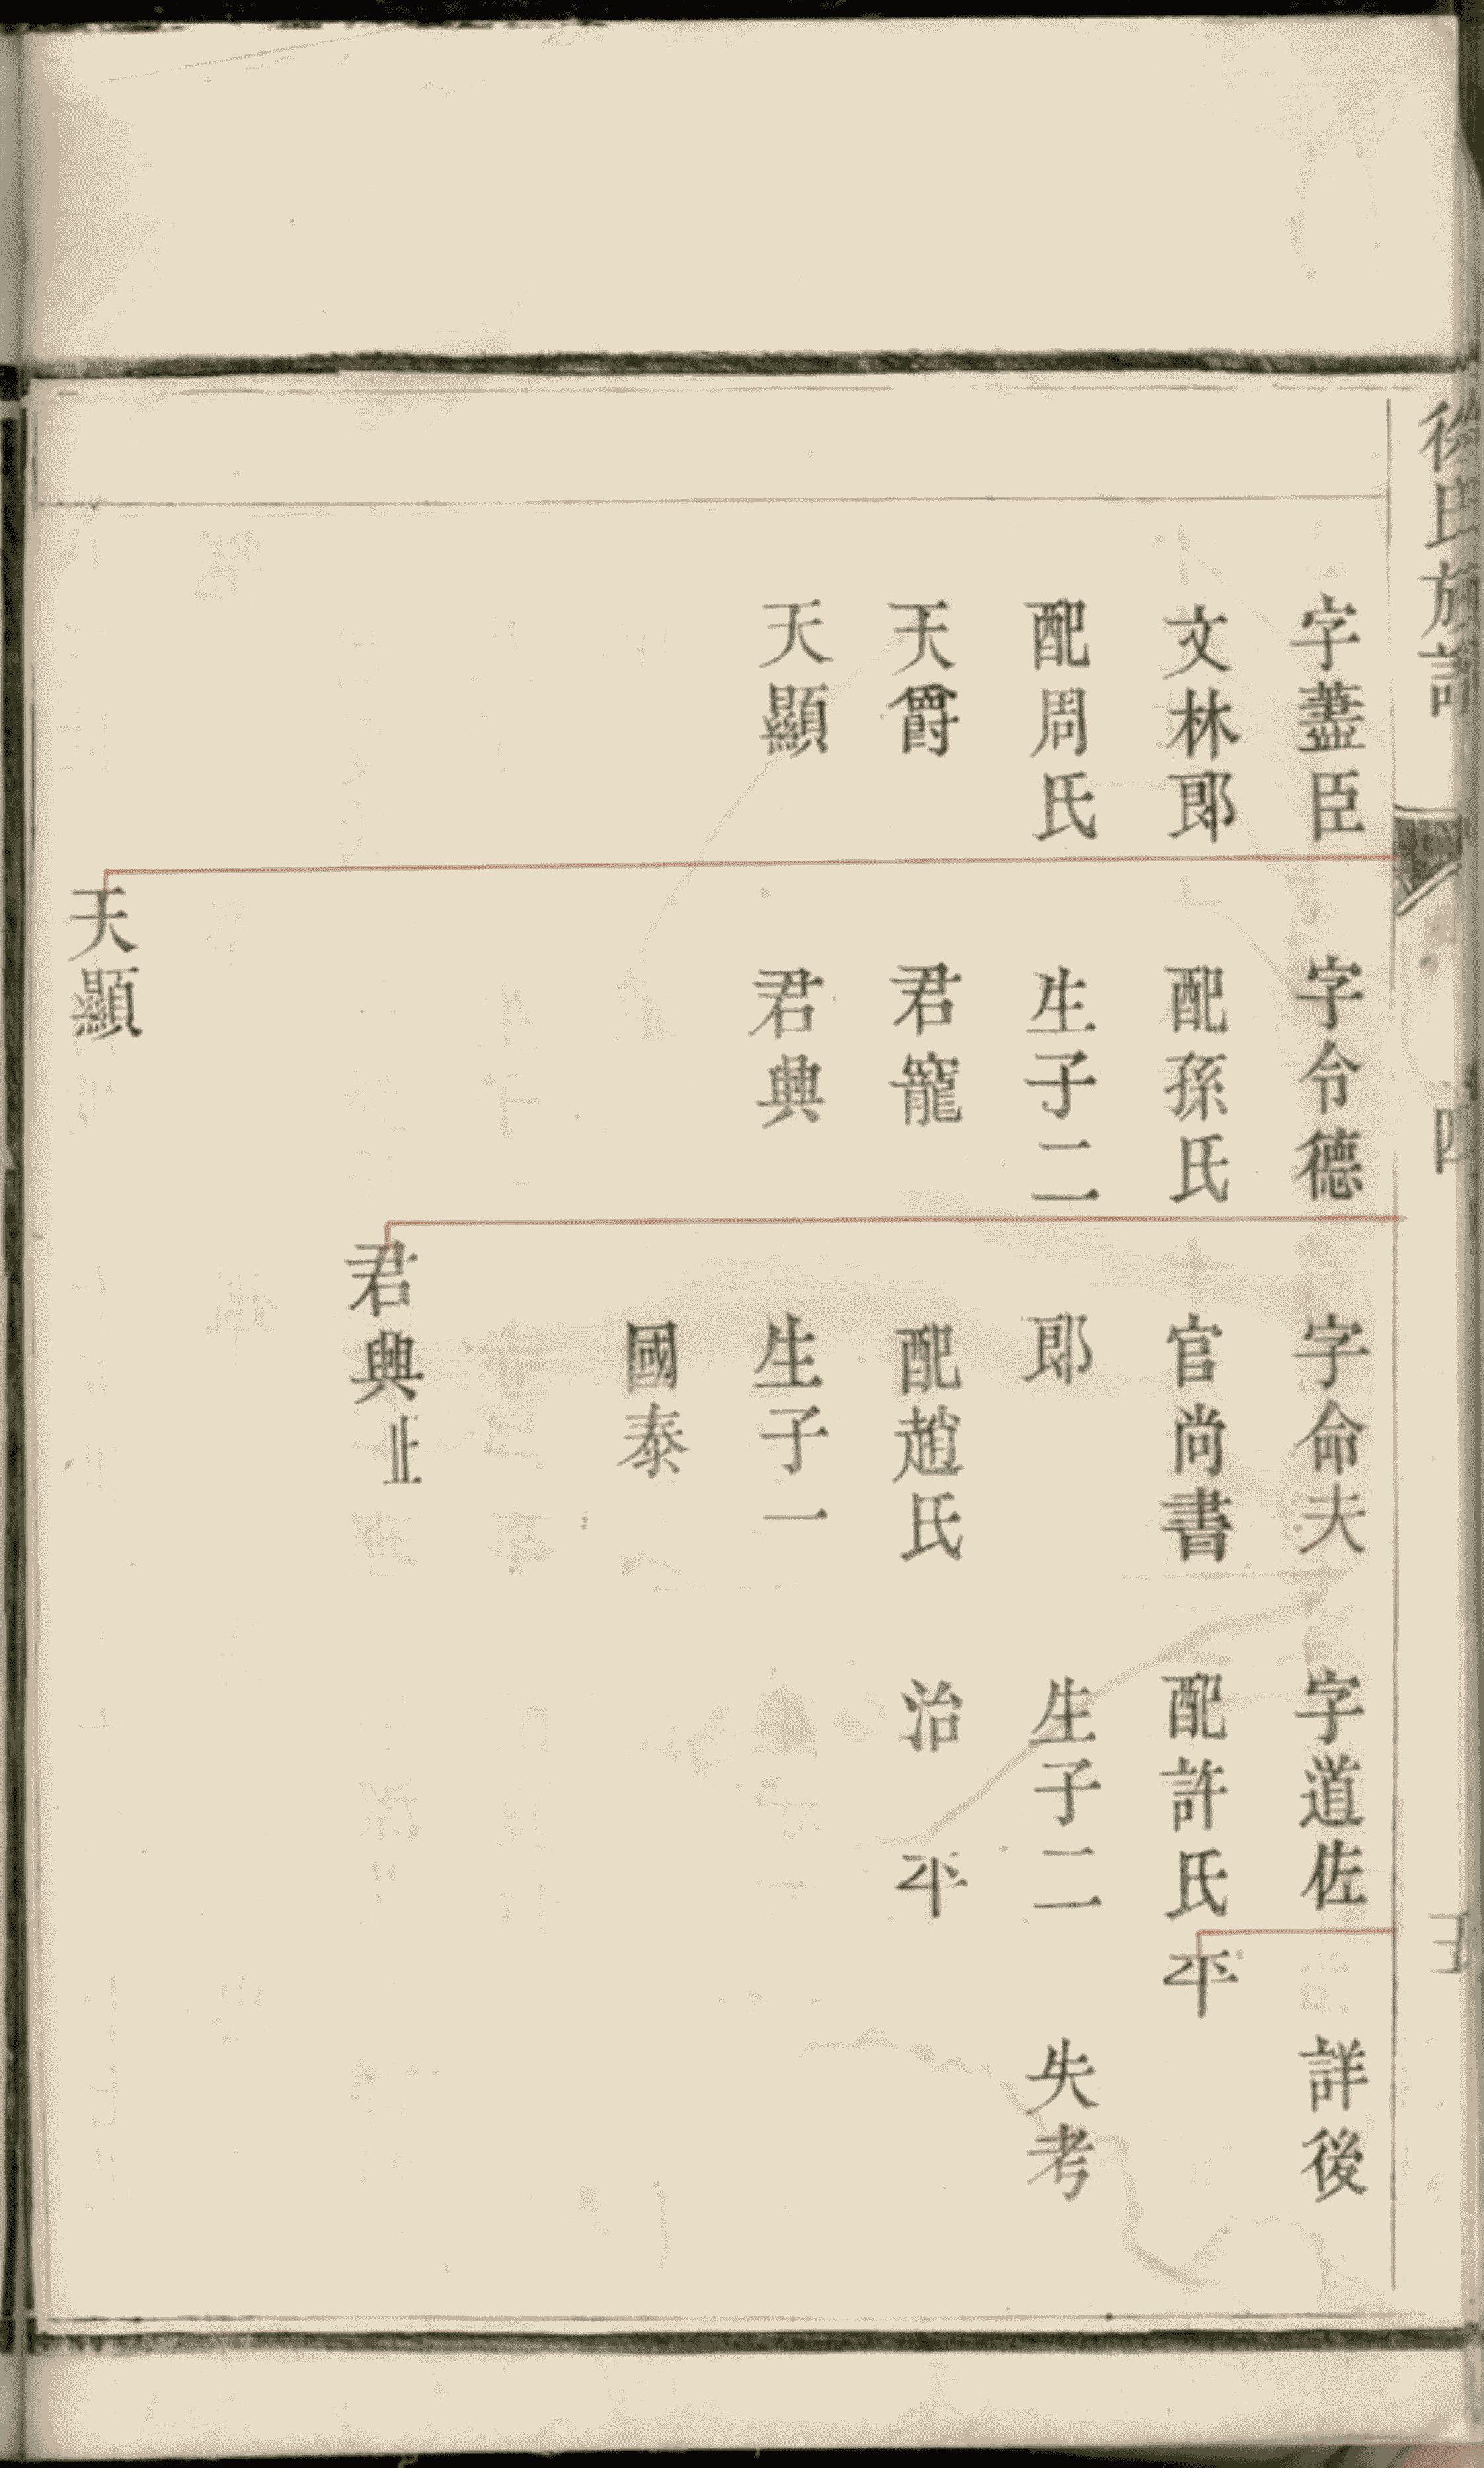 徐氏族譜
四
字藎臣
文林郎
配周氏
天爵
天顯
字令德
配孫氏
生子二
君寵
君興
天顯
字命夫
官尚書
郎
配趙氏
生子一
國泰
君興止
字道佐
配許氏
生子二
治 平
詳後
平
失考